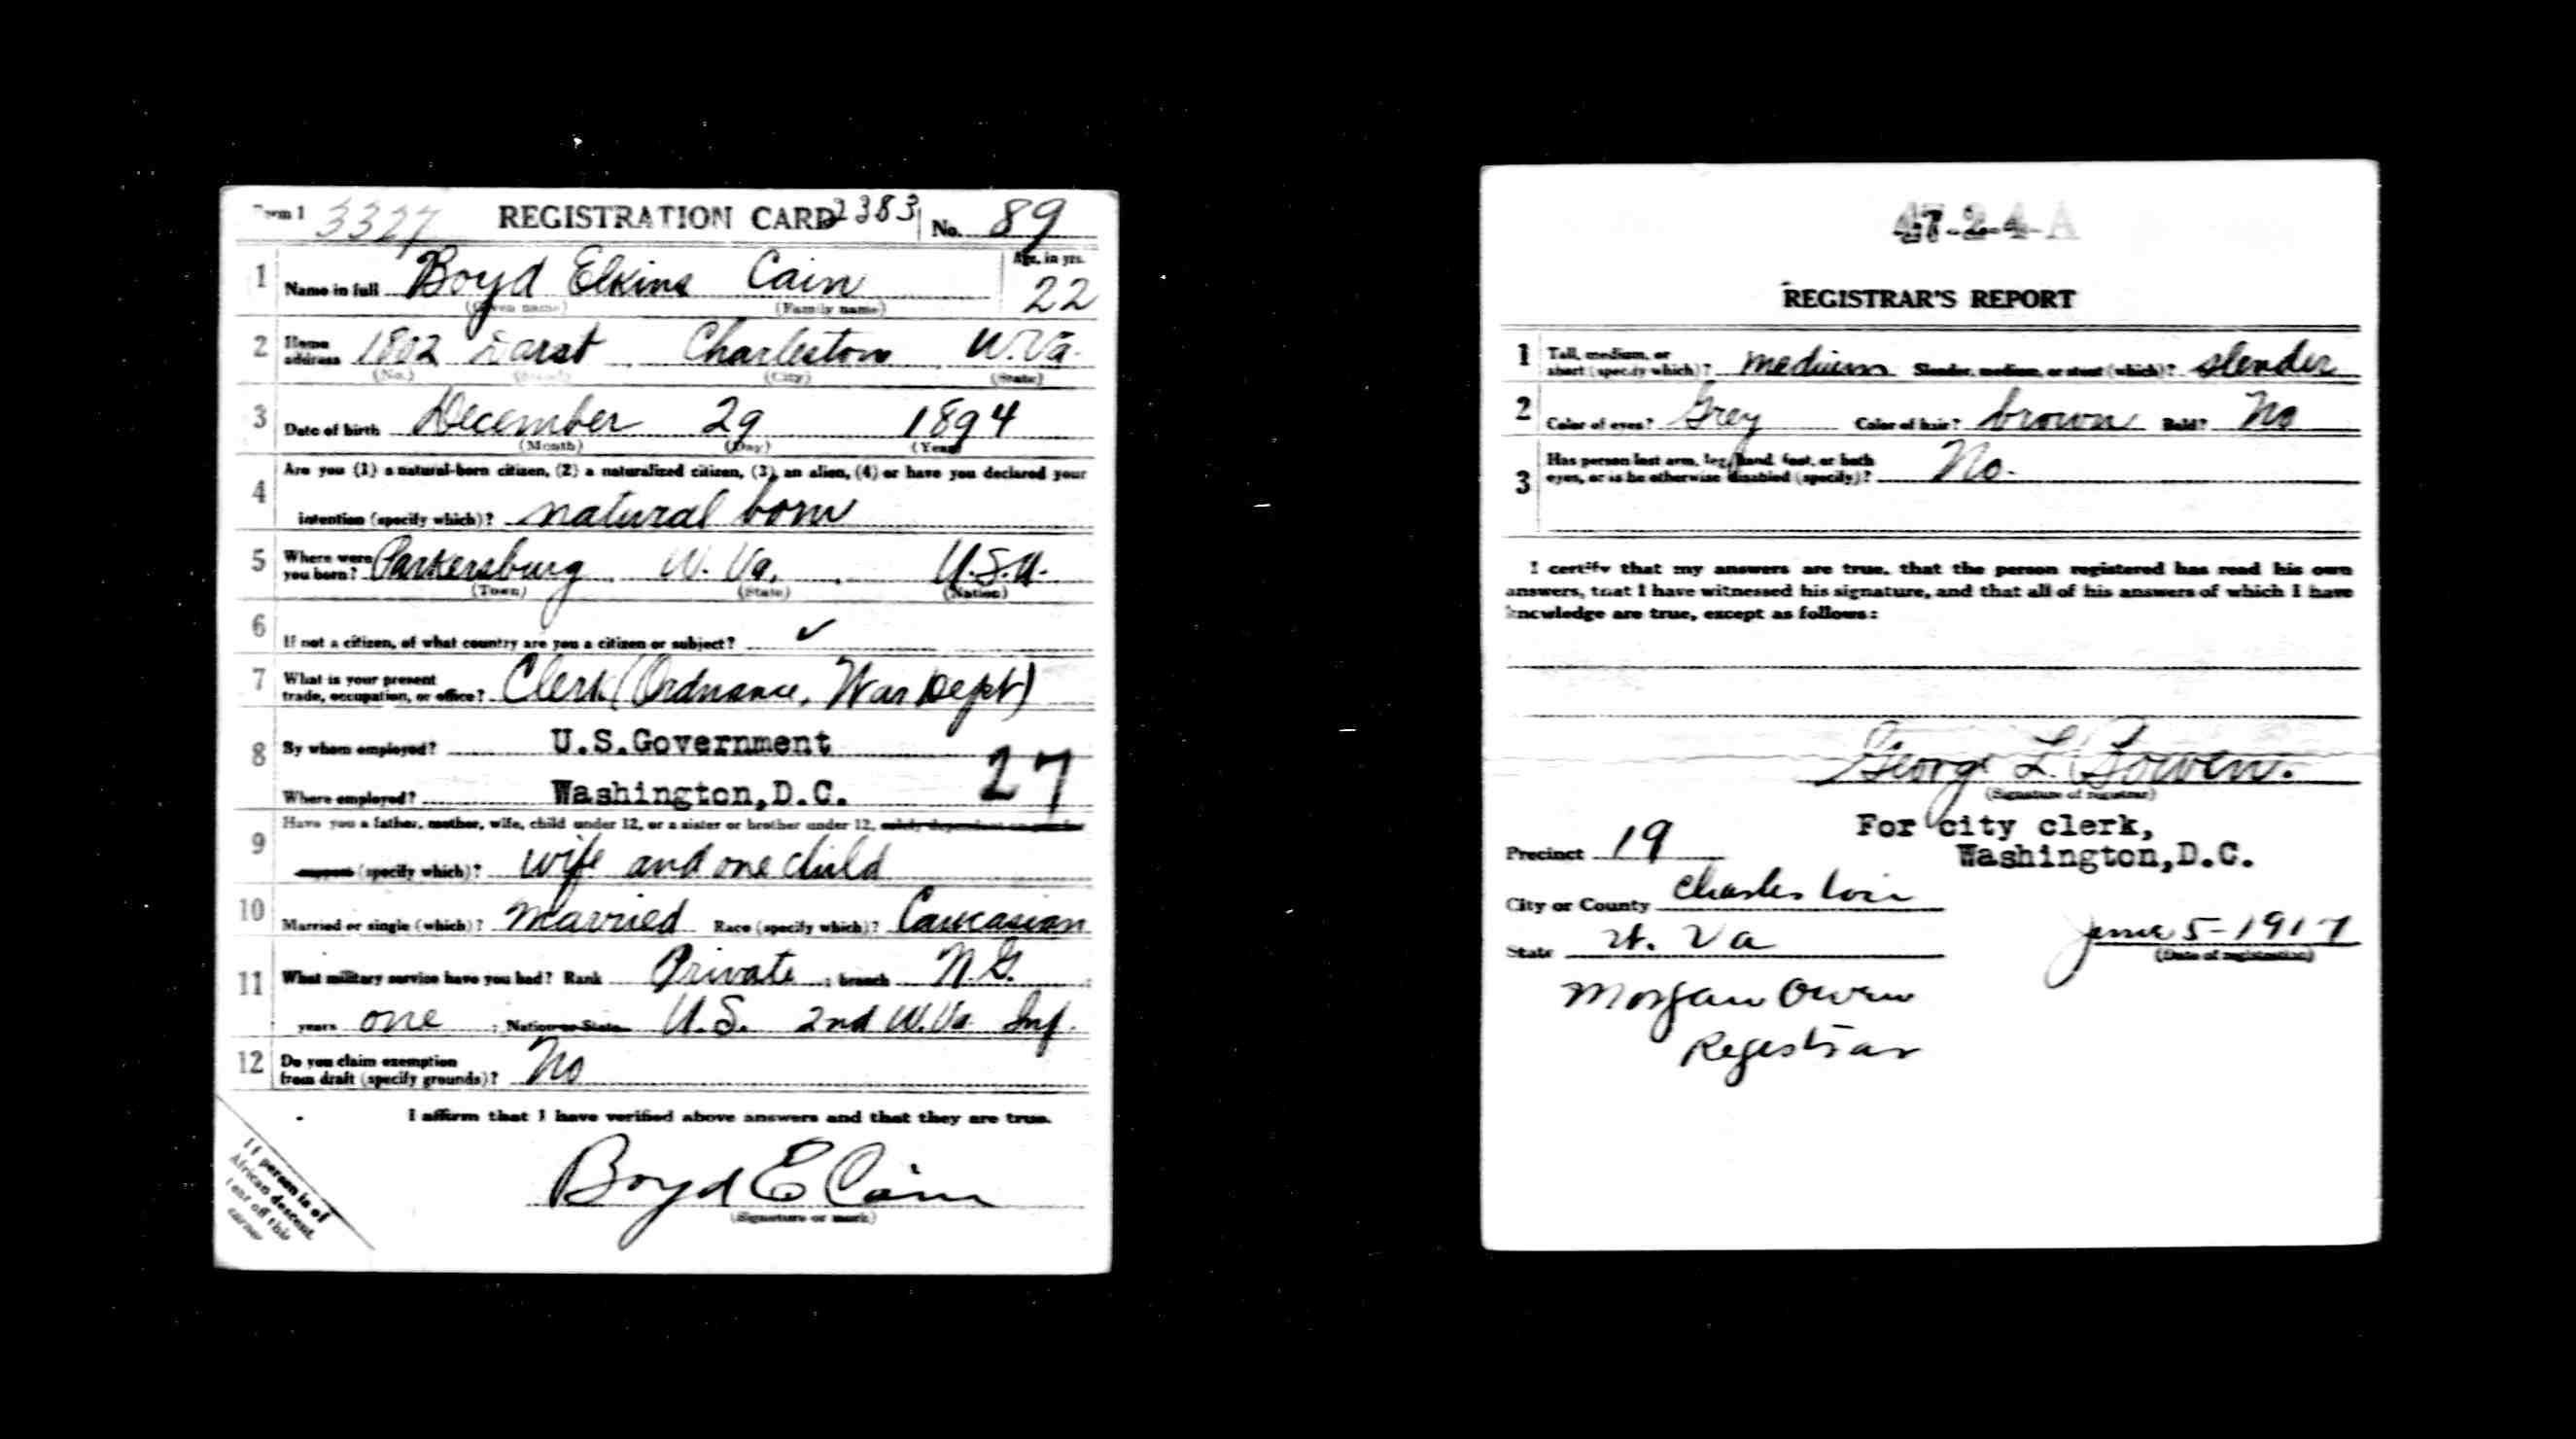 Form 1 3327 REGISTRATION CARD 2383 No. 89
1 Name in full Boyd Elkins Cain Age, in yrs. 22
(Given name) (Family name)
2 Home address 1802 Darst Charleston W.Va.
(No.) (Street) (City) (State)
3 Date of birth December 29 1894
(Month) (Day) (Year)
4 Are you (1) a natural-born citizen, (2) a naturalized citizen, (3) an alien, (4) or have you declared your
intention (specify which)? natural born
5 Where were you born? Parkersburg W. Va. U.S.A.
(Town) (State) (Nation)
6 If not a citizen, of what country are you a citizen or subject? ✓
7 What is your present
trade, occupation, or office? Clerk (Ordnance, War Dept)
8 By whom employed? U.S.Government
Where employed? Washington,D.C. 27
9 Have you a father, mother, wife, child under 12, or a sister or brother under 12, solely dependent on you for
support (specify which)? wife and one child
10 Married or single (which)? Married Race (specify which)? Caucasian
11 What military service have you had? Rank Private ; branch N.G.
years one ; Nation or State U.S. 2nd W.Va. Inf.
12 Do you claim exemption
from draft (specify grounds)? No
I affirm that I have verified above answers and that they are true.
Boyd E Cain
(Signature or mark)
If person is of
African descent
tear off this
corner
47-2-4-A
REGISTRAR'S REPORT
1 Tall, medium, or
short (specify which)? medium Slender, medium, or stout (which)? slender
2 Color of eyes? Grey Color of hair? brown Bald? No
3 Has person lost arm, leg, hand, foot, or both
eyes, or is he otherwise disabled (specify)? No.
I certify that my answers are true, that the person registered has read his own
answers, that I have witnessed his signature, and that all of his answers of which I have
knowledge are true, except as follows:
George L.
(Signature of registrar)
For city clerk,
Washington,D.C.
Precinct 19
City or County Charleston
State W. Va
June 5-1917
(Date of registration)
Morgan Owen
Registrar